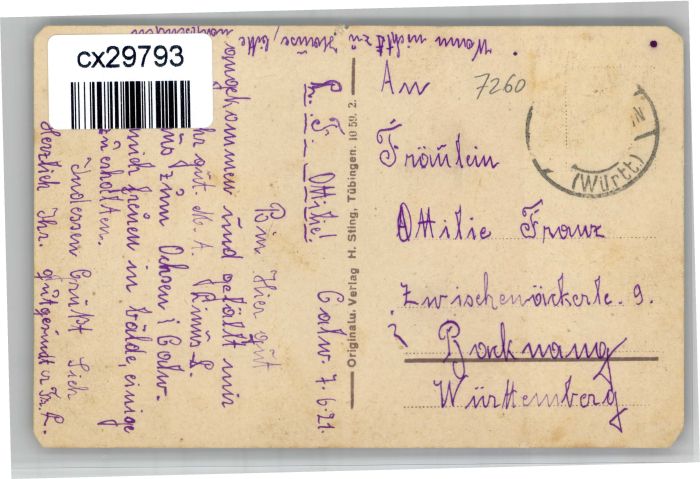 cx29793
Wann nicht zu Hause, bitte
nachsenden
7260
An
Fräulein
Ottilie Franz
Zwischenäckerle. 9.
Backnang
Württemberg
(Württ.)
Originalw. Verlag H. Sting, Tübingen. 10 59. 2.
Calw. 7.6.21.
L. F. Ottilie!
Bin Hier gut
angekommen und gefällt mir
gut. M. A.
zum Ochsen i Calw.
mich freuen in bälde, einige
zu erhalten.
Indessen Grüßt Sich
Herzlich Ihr.